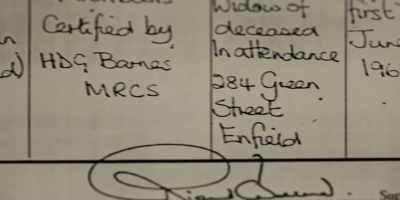 Certified by
HDG Barnes
MRCS
Widow of
deceased
In attendance
284 Green
Street
Enfield
first
June
196